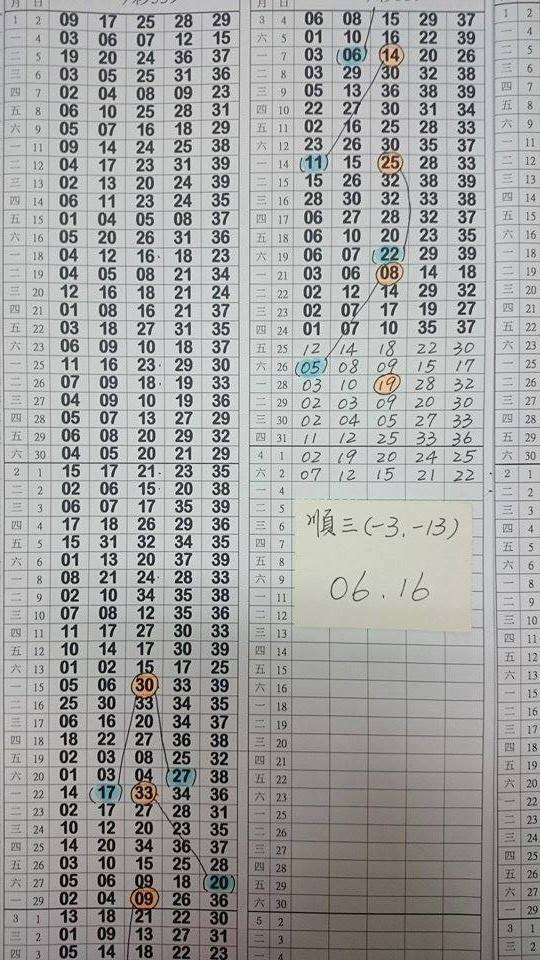 月 日
1 2 09 17 25 28 29
一 4 03 06 07 12 15
二 5 19 20 24 36 37
三 6 03 05 25 31 36
四 7 02 04 08 09 23
五 8 06 10 25 28 31
六 9 05 07 16 18 29
一 11 09 14 24 25 38
二 12 04 17 23 31 39
三 13 02 13 20 24 39
四 14 06 11 23 24 35
五 15 01 04 05 08 37
六 16 05 20 26 31 36
一 18 04 12 16 18 23
二 19 04 05 08 21 34
三 20 12 16 18 21 24
四 21 01 08 16 21 37
五 22 03 18 27 31 35
六 23 06 09 10 18 37
一 25 11 16 23 29 30
二 26 07 09 18 19 33
三 27 04 09 10 19 36
四 28 05 07 13 27 29
五 29 06 08 20 29 32
六 30 04 05 20 21 29
2 1 15 17 21 23 35
二 2 02 06 15 20 38
三 3 06 07 17 35 39
四 4 17 18 26 29 36
五 5 15 31 32 34 35
六 6 01 13 20 37 39
一 8 08 21 24 28 33
二 9 02 10 34 35 38
三 10 07 08 12 35 36
四 11 11 17 27 30 33
五 12 10 14 17 30 39
六 13 01 02 15 17 25
一 15 05 06 30 33 39
二 16 25 30 33 34 35
三 17 06 16 20 34 37
四 18 18 22 27 36 38
五 19 02 03 08 25 32
六 20 01 03 04 27 38
一 22 14 17 33 34 36
二 23 02 17 27 28 31
三 24 10 12 20 23 35
四 25 14 20 34 36 37
五 26 03 10 15 25 28
六 27 05 06 09 18 20
一 29 02 04 09 26 36
3 1 13 18 21 22 30
三 2 01 09 13 27 31
四 3 05 14 18 22 23
月 日
3 4 06 08 15 29 37
六 5 01 10 16 22 39
一 7 03 06 14 20 26
二 8 03 29 30 32 38
三 9 05 13 36 38 39
四 10 22 27 30 31 34
五 11 02 16 25 28 33
六 12 23 26 30 35 37
一 14 11 15 25 28 33
二 15 15 26 32 38 39
三 16 28 30 32 33 38
四 17 06 27 28 32 37
五 18 06 10 20 23 35
六 19 06 07 22 29 39
一 21 03 06 08 14 18
二 22 02 12 14 29 32
三 23 02 07 17 19 27
四 24 01 07 10 35 37
五 25 12 14 18 22 30
六 26 05 08 09 15 17
一 28 03 10 19 28 32
二 29 02 03 09 20 30
三 30 02 04 05 27 33
四 31 11 12 25 33 36
4 1 02 19 20 24 25
六 2 07 12 15 21 22
一 4
二 5
三 6
四 7
五 8
六 9
一 11
二 12
三 13
四 14
五 15
六 16
一 18
二 19
三 20
四 21
五 22
六 23
一 25
二 26
三 27
四 28
五 29
六 30
5 2
二 3
三 4
順三(-3.-13)
06.16
1 2
一 4
二 5
三 6
四 7
五 8
六 9
一 11
二 12
三 13
四 14
五 15
六 16
一 18
二 19
三 20
四 21
五 22
六 23
一 25
二 26
三 27
四 28
五 29
六 30
2 1
二 2
三 3
四 4
五 5
六 6
一 8
二 9
三 10
四 11
五 12
六 13
一 15
二 16
三 17
四 18
五 19
六 20
一 22
二 23
三 24
四 25
五 26
六 27
一 29
3 1
三 2